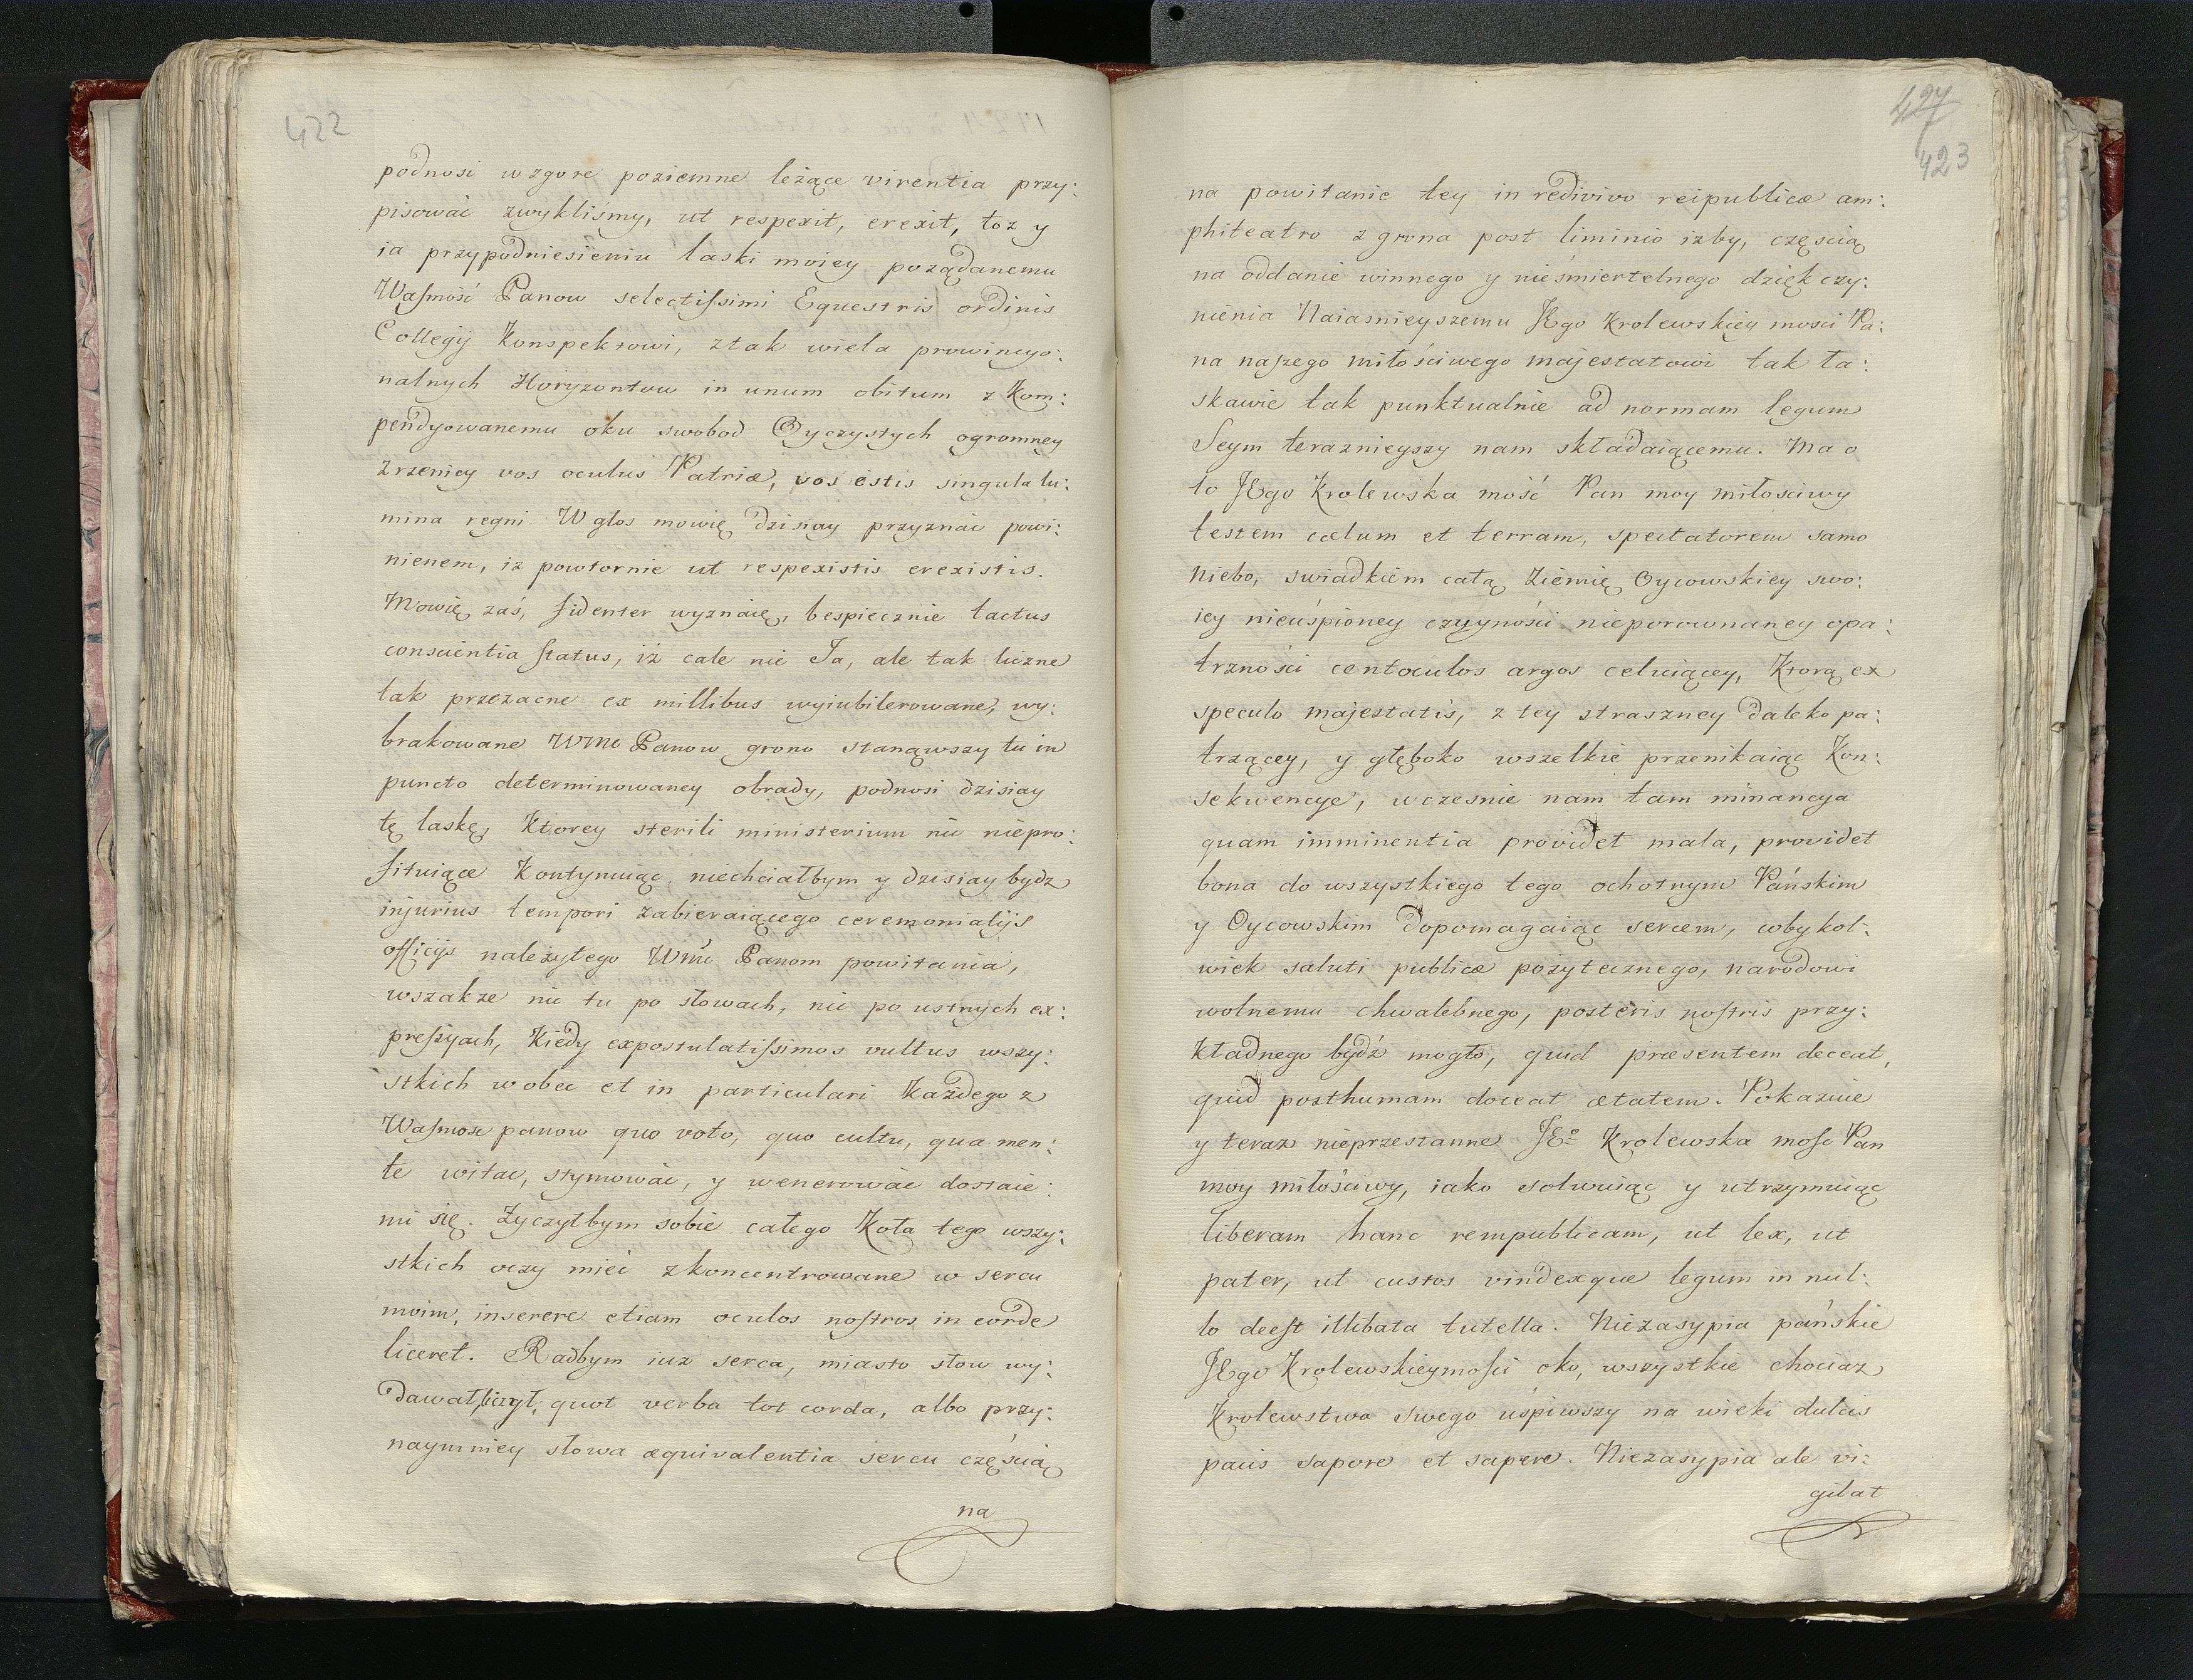 422
podnosi wzgorę poziemne leżące virentia przy:
pisować zwykliśmy, ut respexit, erexit, toż y
ia przypodniesieniu laski moiey pożądanemu
Waſmość Panow selectiſsimi Equestris ordinis
Collegij Konspektowi, ztak wiela prowincyo:
nalnych Horyzontow in unum obitum z Kom:
pendyowanemu oku swobod Oyczystych ogromney
zrzenicy vos oculus Patriæ, vos estis singula lu:
mina regni. W głos mowię dzisiay przyznać powi:
nienem, iż powtornie ut respexistis erexistis.
Mowię zaś, fidenter wyznaię, bespiecznie tactus
conscientia ſtatus, iż cale nie Ja, ale tak liczne
tak przezacne ex millibus wyiubilerowane, wy:
brakowane Wmć Panow grono stanąwszy tu in
puncto determinowaney obrady, podnosi dzisiay
tę laskę, Ktorey sterili ministerium nic niepro:
fituiące Kontynuiąc, niechciałbym y dzisiay bydz
injurius tempori zabieraiącego ceremonialijs
officijs należytego Wmć Panom powitania,
wszakże nie tu po słowach, nie po ustnych ex:
preſsyach, Kiedy expostulatiſsimos vultus wszy:
stkich wobec et in particulari Każdego z
Waſmosc panow quo voto, quo cultu, qua men:
te witac, stymować, y wenerować dostaie:
mi się. Zyczyłbym sobie całego Koła tego wszy:
stkich oczy mieć zkoncentrowane w sercu
moim, inserere etiam oculos noſtros in corde
liceret. Radbym iuż serca, miasto słow wy:
dawał, liczył, quot verba tot corda, albo przy:
naymniey słowa æquivalentia sercu częścią
na
427
423
na powitanie tey in redivivo reipublicæ am:
phiteatro z grona post liminio izby, częścią
na oddanie winnego y nieśmiertelnego dziękczy:
nienia Naiasnieyszemu JEgo Krolewskiey mosci Pa:
na naſzego miłościwego majestatowi tak ła:
skawie tak punktualnie ad normam legum
Seym teraznieyszy nam składaiącemu. Ma o
to JEgo Krolewska mość Pan moy miłościwy
testem cœlum et terram, spectatorem samo
Niebo, swiadkiem całą Ziemię Oycowskiey swo:
iey nieuśpioney czuyności nieporownaney opa:
trzności centoculos argos celuiącey, Ktorą ex
speculo majestatis, z tey straszney daleko pa:
trzącey, y głęboko wszelkie przenikaiąc Kon:
sekwencye, wczesnie nam tam minancya
quam imminentia providet mala, providet
bona do wszystkiego tego ochotnym Pańskim
y Oycowskim dopomagaiąc sercem, cobykol:
wiek saluti publicæ pożytecznego, narodowi
wolnemu chwalebnego, posteris noſtris przy:
Kładnego bydź mogło, quid præsentem deceat,
quid posthumam doceat ætatem. Pokazuie
y teraz nieprzestanne JEº Krolewska mosc Pan
moy miłościwy, iako solwuiąc y utrzymuiąc
liberam hanc rempublicam, ut lex, ut
pater, ut custos vindexque legum in nul:
lo deeſt illibata tutella. Niezasypia pańskie
JEgo Krolewskieymoſci oko, wszystkie chociaz
Krolewstwa swego uśpiwszy na wieki dulcis
pacis sapore et sapere. Niezasypia ale vi:
gilat